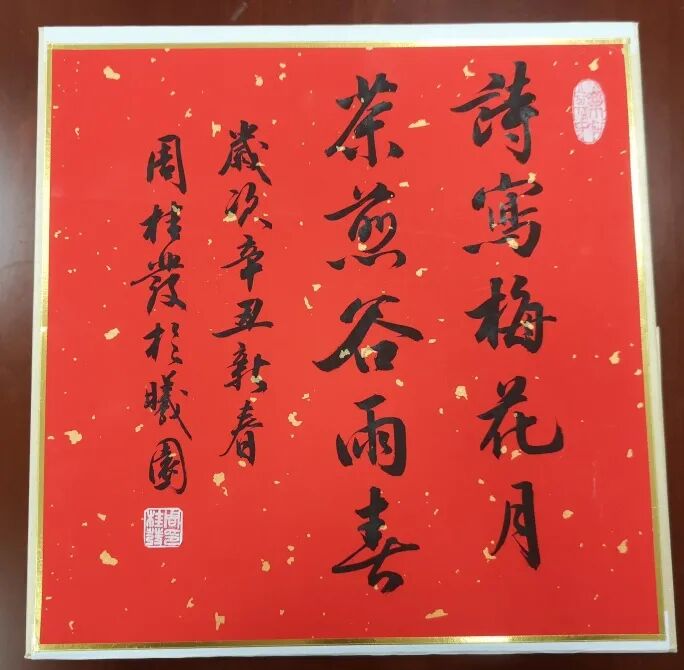 詩寫梅花月
茶煎谷雨春
歲次辛丑新春
周桂發於曦園